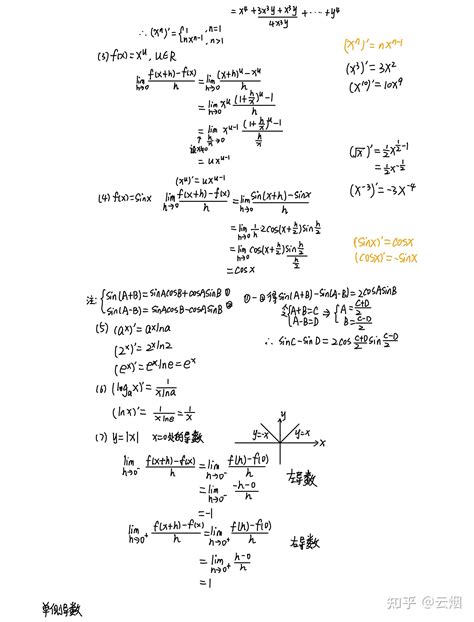 = x⁴ + 3x³y + x³y / 4x³y + ⋯ + y⁴
∴ (xⁿ)' = { 1, n=1
nxⁿ⁻¹, n>1
(xⁿ)' = nxⁿ⁻¹
(3) f(x) = x^u, u∈R
(x³)' = 3x²
lim h→0 f(x+h)-f(x) / h = lim h→0 (x+h)^u - x^u / h
(x¹⁰)' = 10x⁹
= lim h→0 x^u (1+h/x)^u - 1 / h
= lim h/x→0 x^(u-1) (1+h/x)^u - 1 / h/x
设x≠0
= ux^(u-1)
(√x)' = 1/2 x^(1/2 - 1)
= 1/2 x^(-1/2)
(x^u)' = ux^(u-1)
(x⁻³)' = -3x⁻⁴
(4) f(x) = sinx lim h→0 f(x+h)-f(x) / h = lim h→0 sin(x+h)-sinx / h
= lim h→0 1/h 2cos(x+h/2)sin h/2
= lim h→0 cos(x+h/2) sin h/2 / h/2
= cosx
(sinx)' = cosx
(cosx)' = -sinx
注: { sin(A+B) = sinAcosB + cosAsinB ①
sin(A-B) = sinAcosB - cosAsinB ②
①-②得 sin(A+B) - sin(A-B) = 2cosAsinB
令{ A+B=C
A-B=D ⇒ { A = C+D / 2
B = C-D / 2
∴ sinC - sinD = 2cos C+D/2 sin C-D/2
(5) (aˣ)' = aˣlna
(2ˣ)' = 2ˣln2
(eˣ)' = eˣlne = eˣ
(6) (logₐx)' = 1 / xlna
(lnx)' = 1 / xlne = 1/x
(7) y=|x| x=0处的导数
y
y=-x
y=x
x
lim h→0⁻ f(x+h)-f(x) / h = lim h→0⁻ f(h)-f(0) / h
= lim h→0⁻ -h-0 / h
左导数
= -1
lim h→0⁺ f(x+h)-f(x) / h = lim h→0⁺ f(h)-f(0) / h
右导数
= lim h→0⁺ h-0 / h
= 1
单侧导数
知乎 @云烟